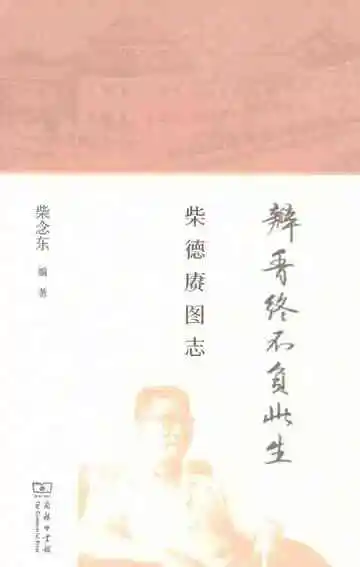 辩香终不负此生
柴德赓图志
柴念东 编著
商务印书馆
The Commercial Press